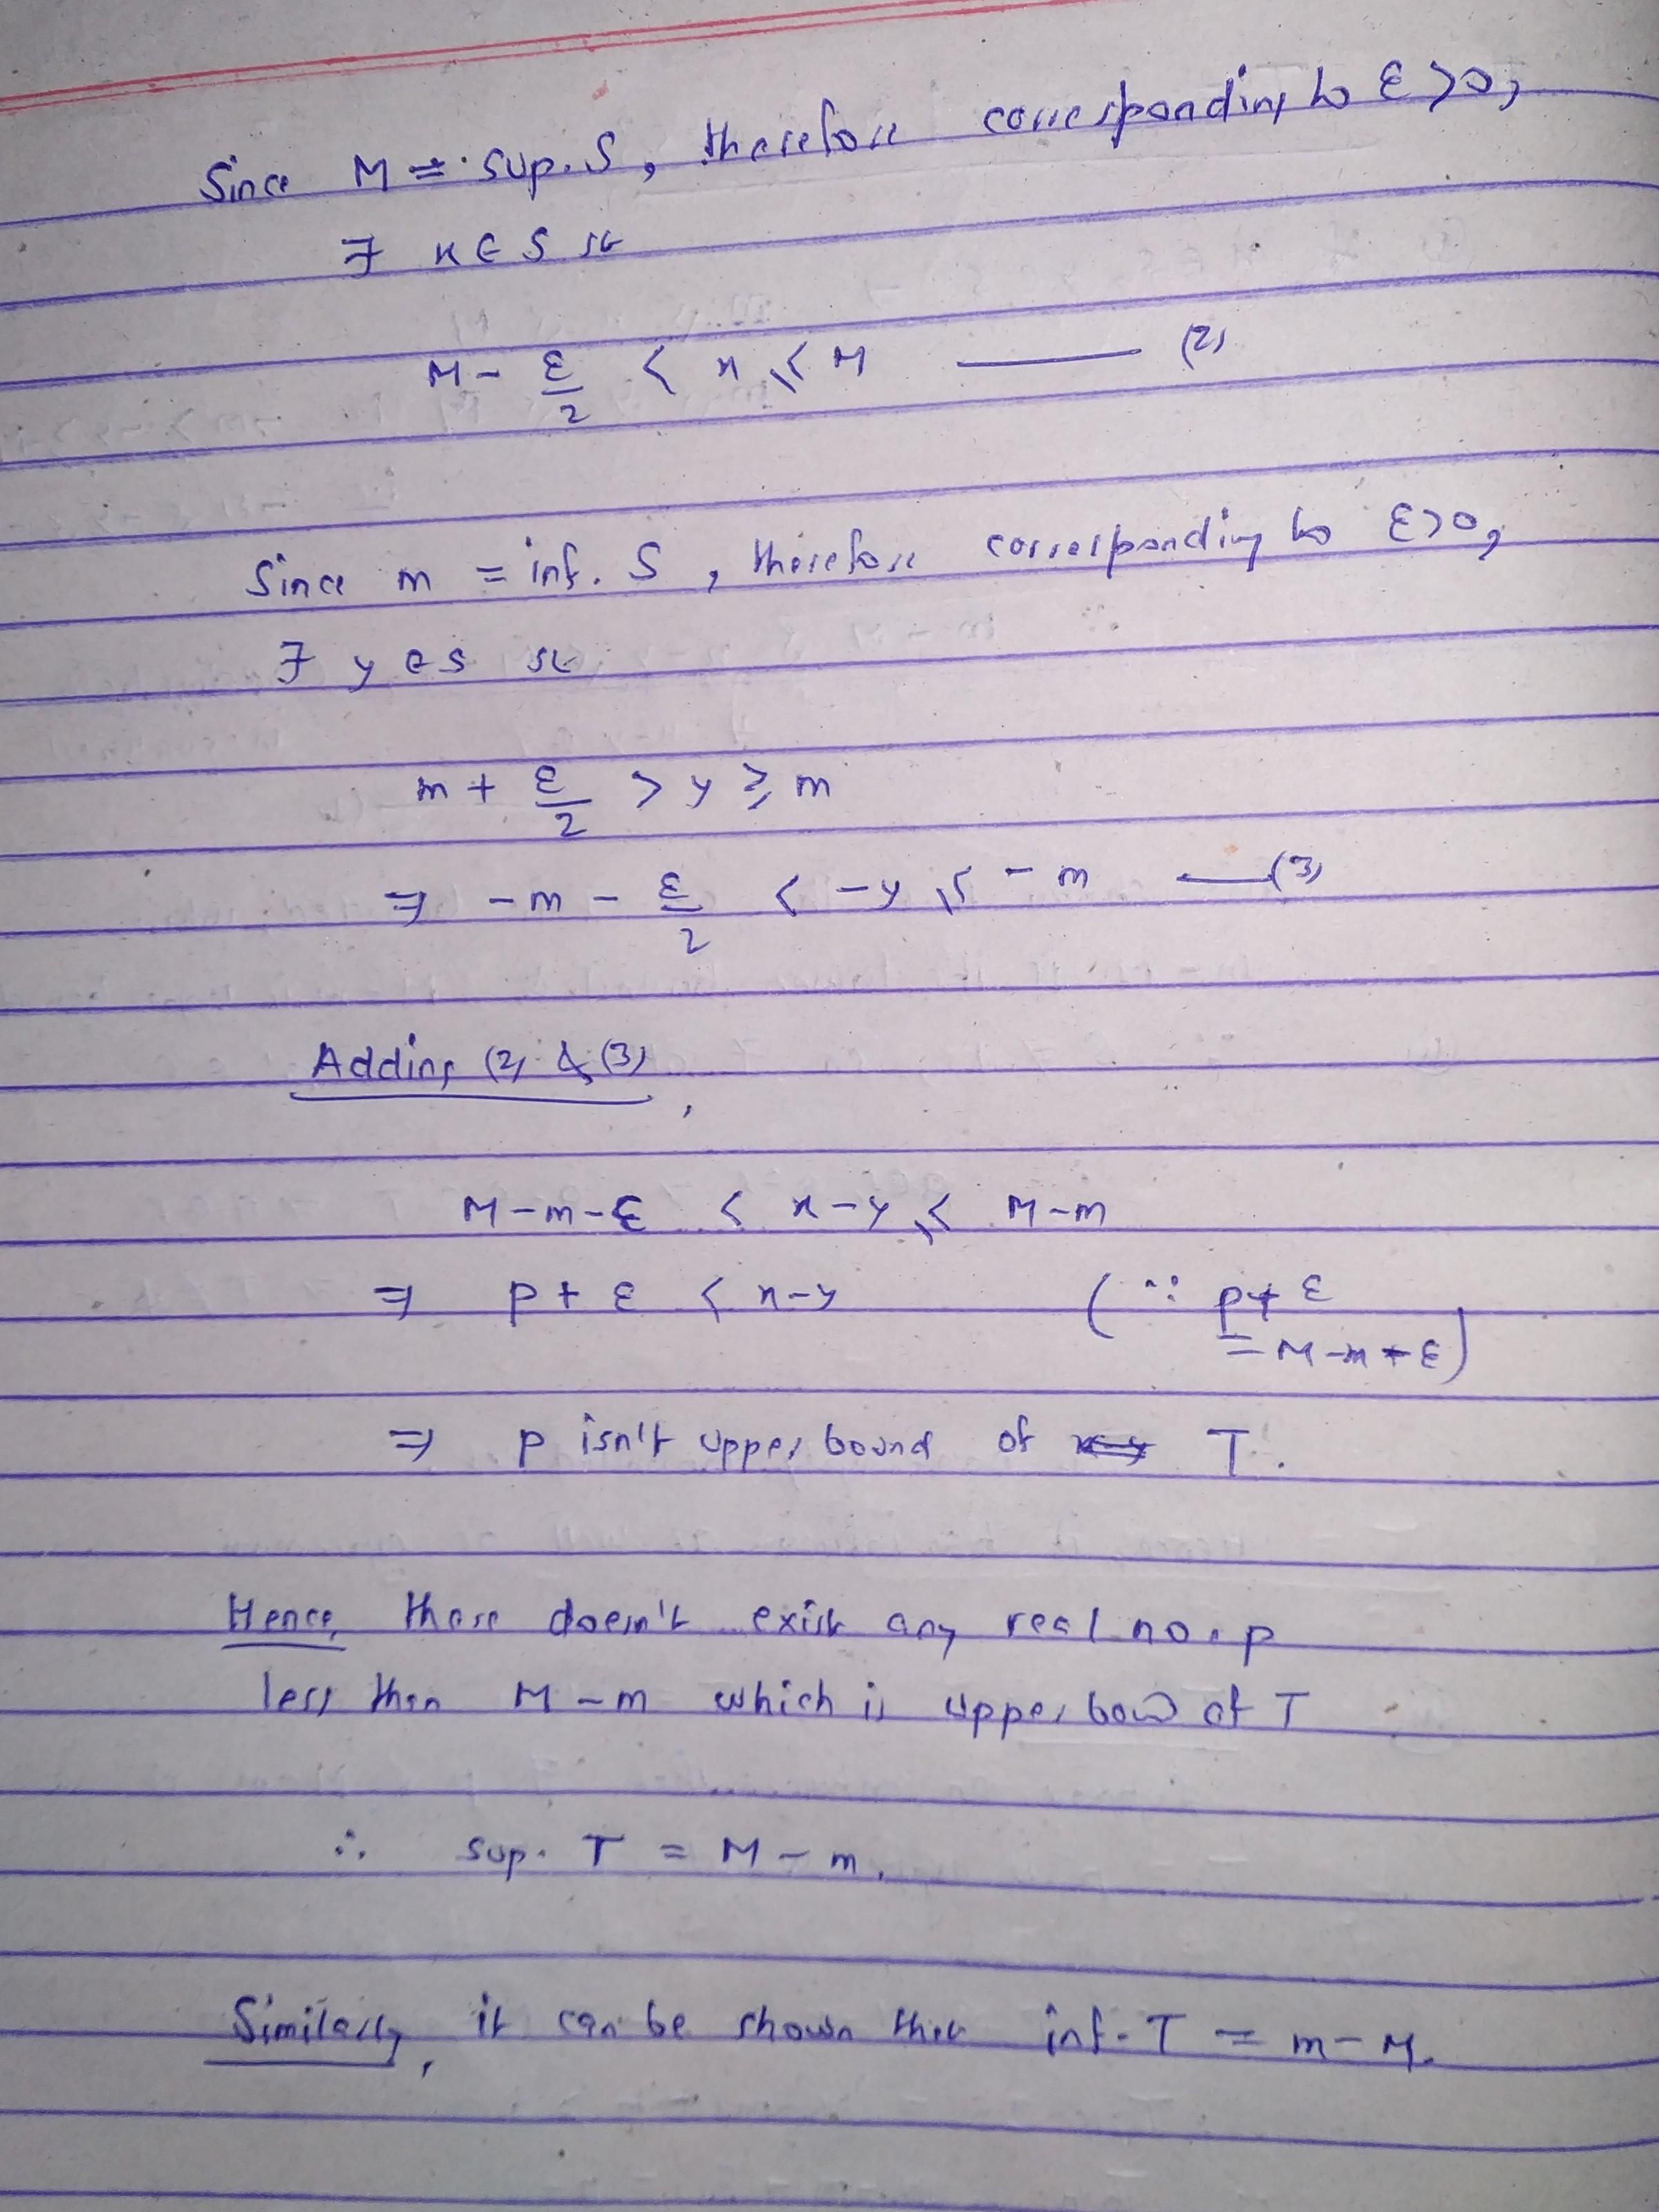 Since M = sup. S, therefore corresponding to ε > 0,
∃ x ∈ S st
M - ε/2 < x ≤ M —— (2)
Since m = inf. S, therefore corresponding to ε > 0,
∃ y ∈ S st
m + ε/2 > y ≥ m
⇒ -m - ε/2 < -y ≤ -m —— (3)
Adding (2) & (3),
M - m - ε < x - y ≤ M - m
⇒ p + ε < x - y (∵ p + ε
= M - m + ε)
⇒ p isn't upper bound of T.
Hence, there doesn't exist any real no. p
less than M - m which is upper bound of T
∴ sup. T = M - m.
Similarly, it can be shown that inf. T = m - M.